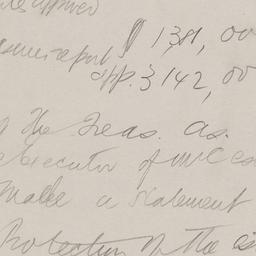 approved
report $ 1381,00
app. 3142,00
The Treas. as.
executor of
Make a statement
Protection of the